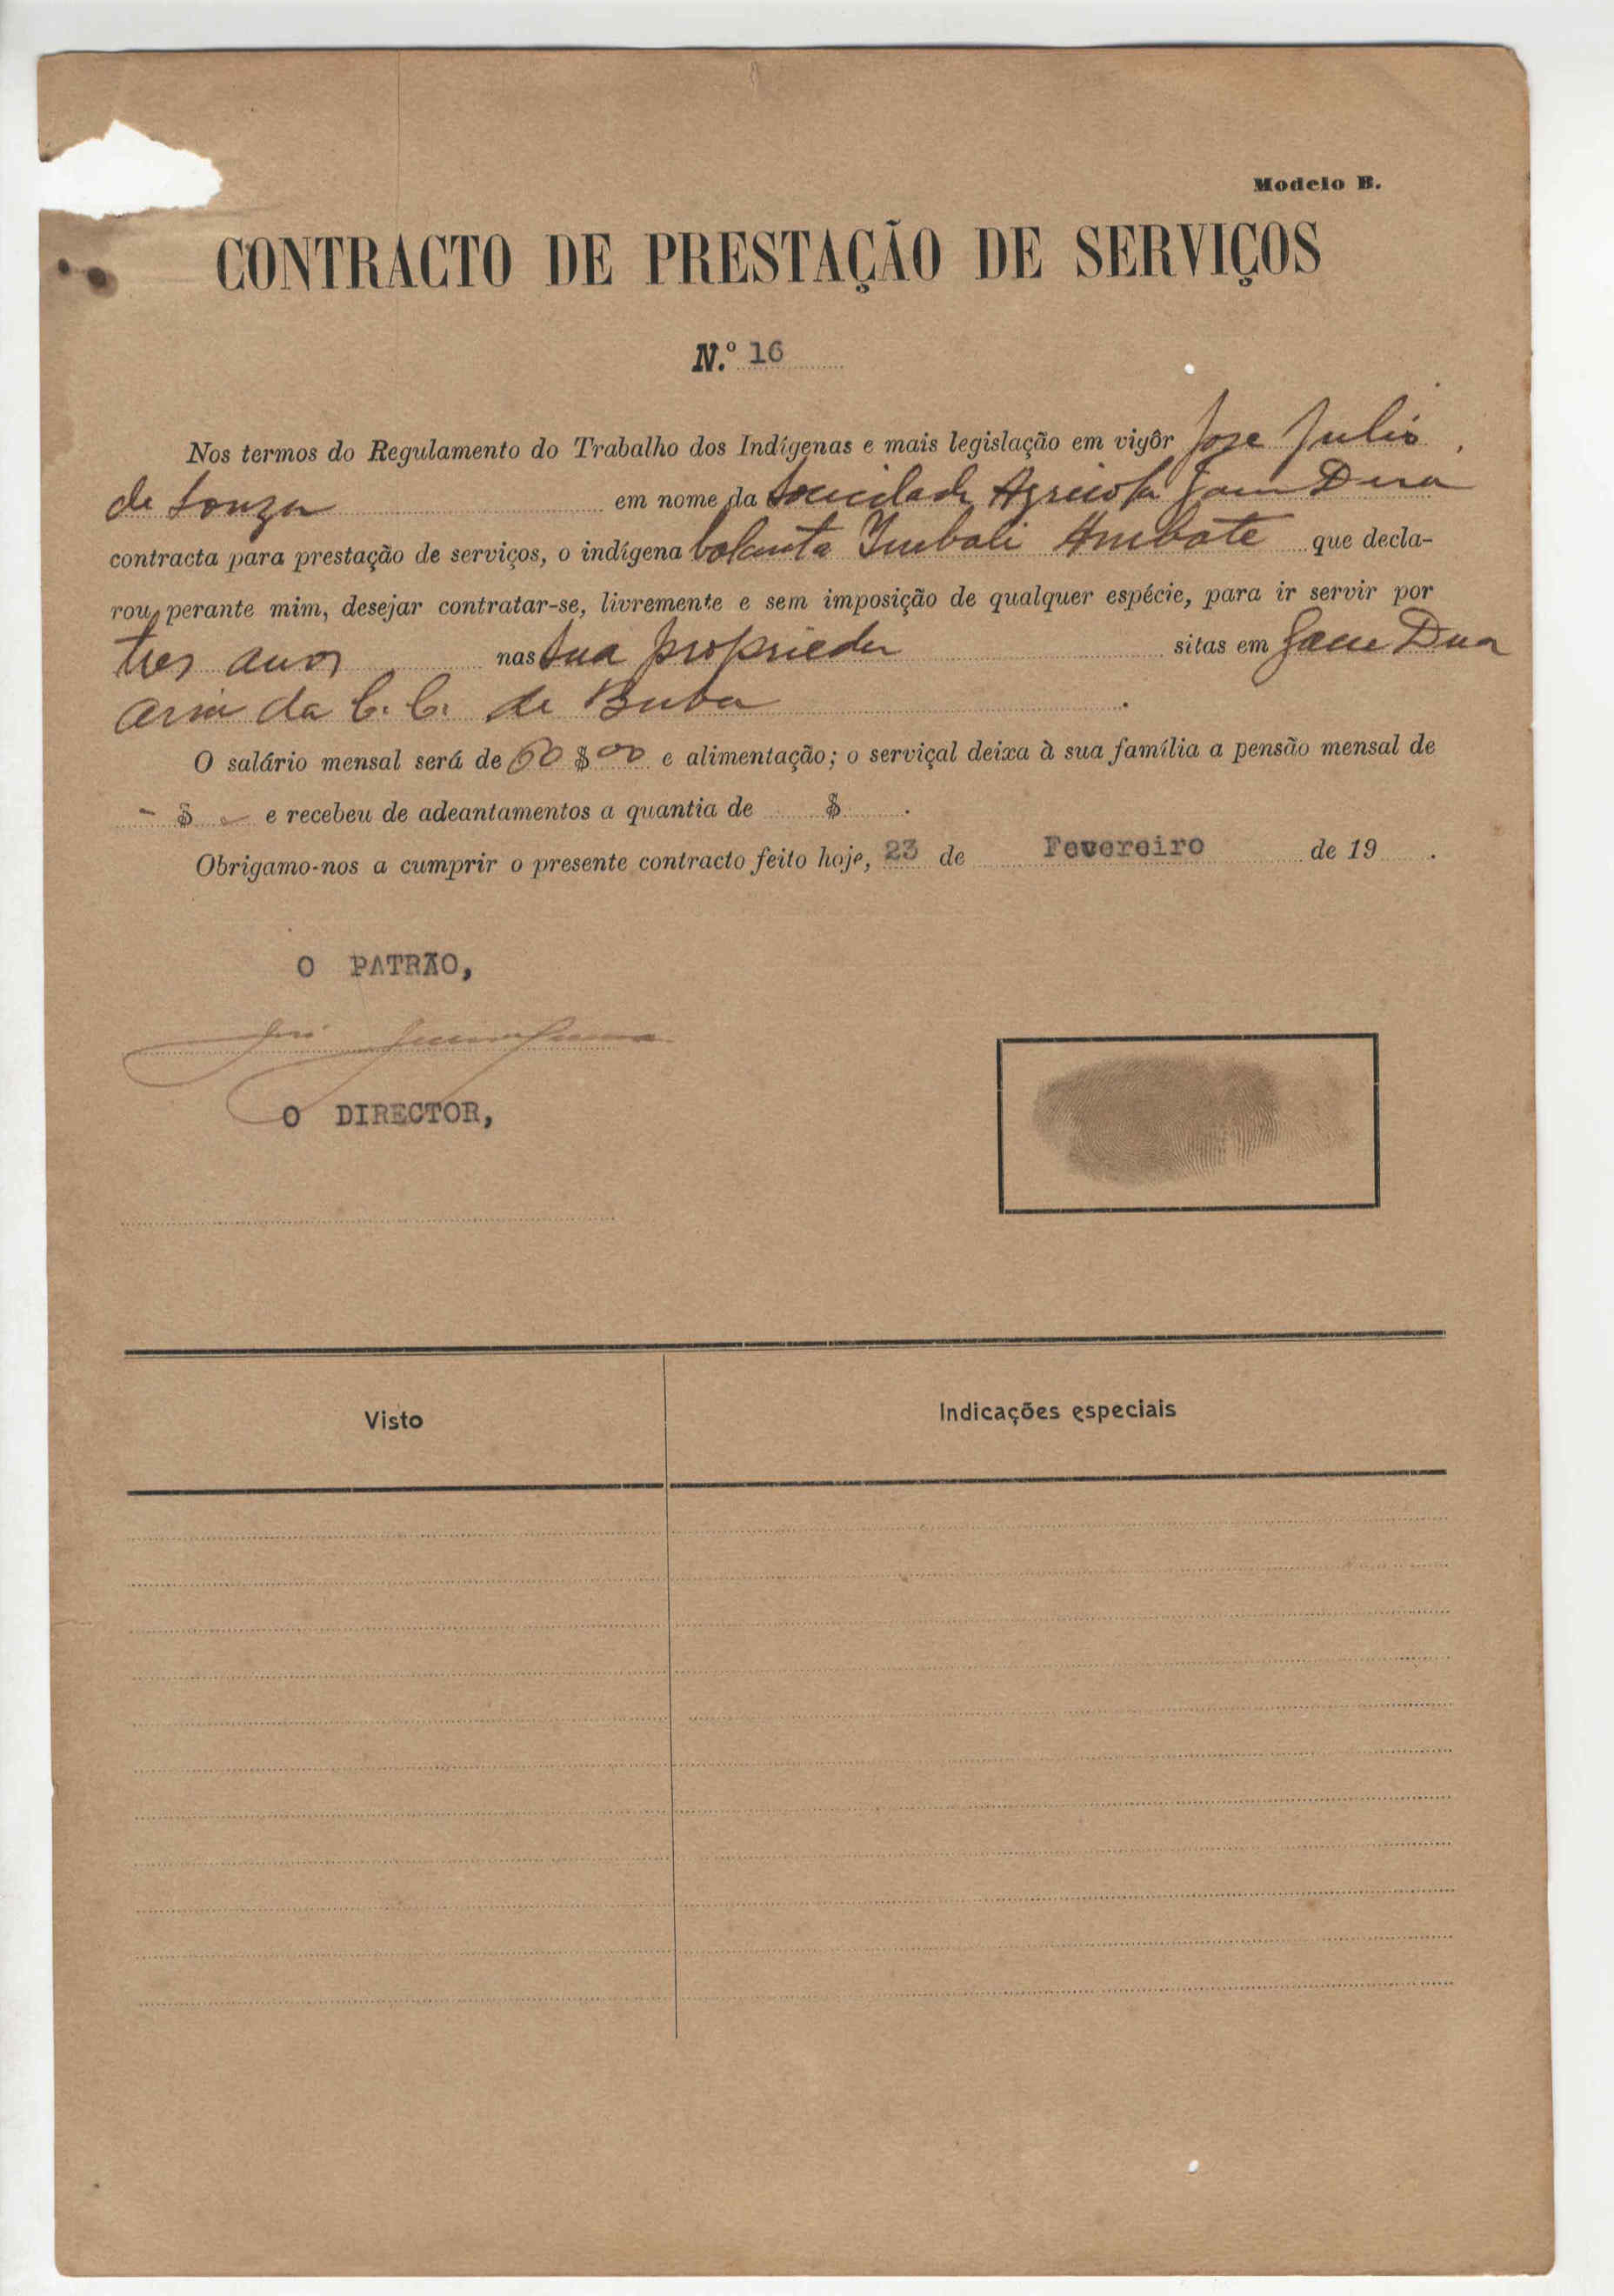 Modelo B.
CONTRACTO DE PRESTAÇÃO DE SERVIÇOS
N.º 16
Nos termos do Regulamento do Trabalho dos Indígenas e mais legislação em vigôr Jose Julio
de Souza em nome da Sociedade Agricola Gam Dua
contracta para prestação de serviços, o indígena balanta Imbali Ambate que decla-
rou, perante mim, desejar contratar-se, livremente e sem imposição de qualquer espécie, para ir servir por
tres anos nas sua sitas em Gam Dua
da C. C. de Buba .
O salário mensal será de 60 $ 00 e alimentação; o serviçal deixa à sua família a pensão mensal de
- $ e recebeu de adeantamentos a quantia de $ .
Obrigamo-nos a cumprir o presente contracto feito hoje, 23 de Fevereiro de 19 .
O PATRÃO,
O DIRECTOR,
Visto Indicações especiais